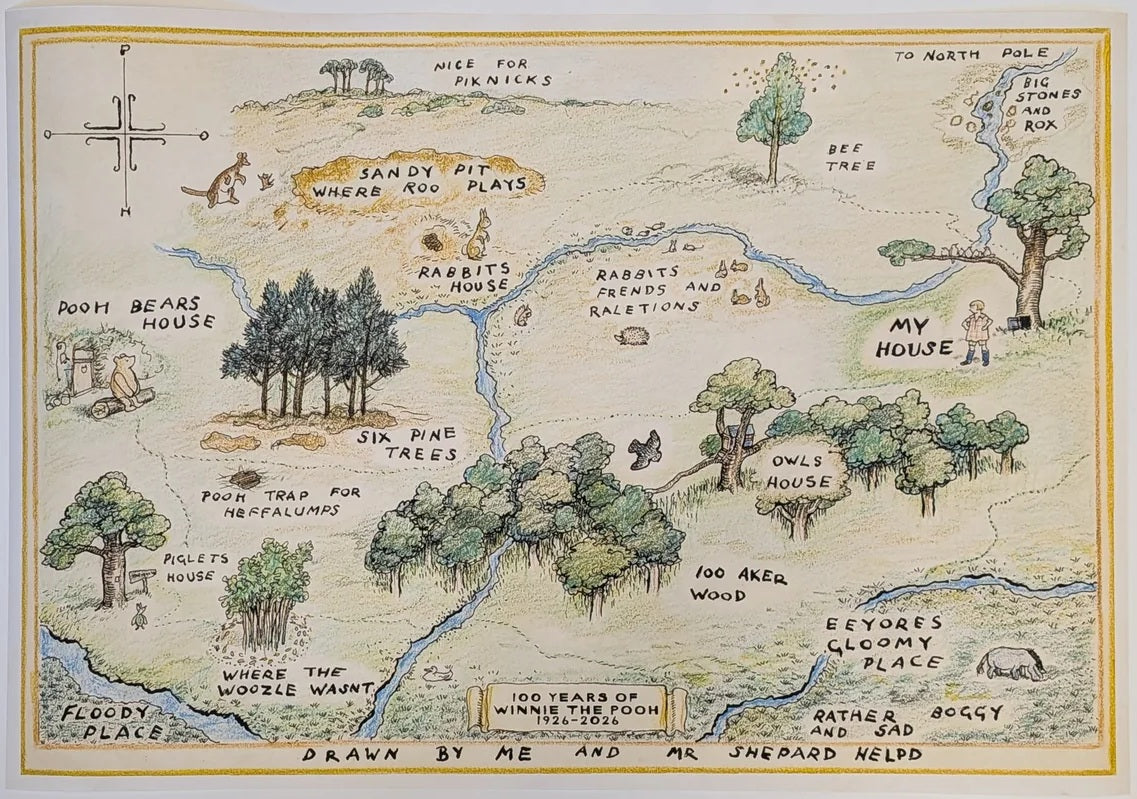 P
O
O
H
NICE FOR
PIKNICKS
TO NORTH POLE
BIG
STONES
AND
ROX
BEE
TREE
SANDY PIT
WHERE ROO PLAYS
RABBITS
HOUSE
RABBITS
FRENDS AND
RALETIONS
POOH BEARS
HOUSE
MY
HOUSE
SIX PINE
TREES
OWLS
HOUSE
POOH TRAP FOR
HEFFALUMPS
PIGLETS
HOUSE
100 AKER
WOOD
EEYORES
GLOOMY
PLACE
WHERE THE
WOOZLE WASNT
100 YEARS OF
WINNIE THE POOH
1926-2026
FLOODY
PLACE
RATHER BOGGY
AND SAD
DRAWN BY ME AND MR SHEPARD HELPD